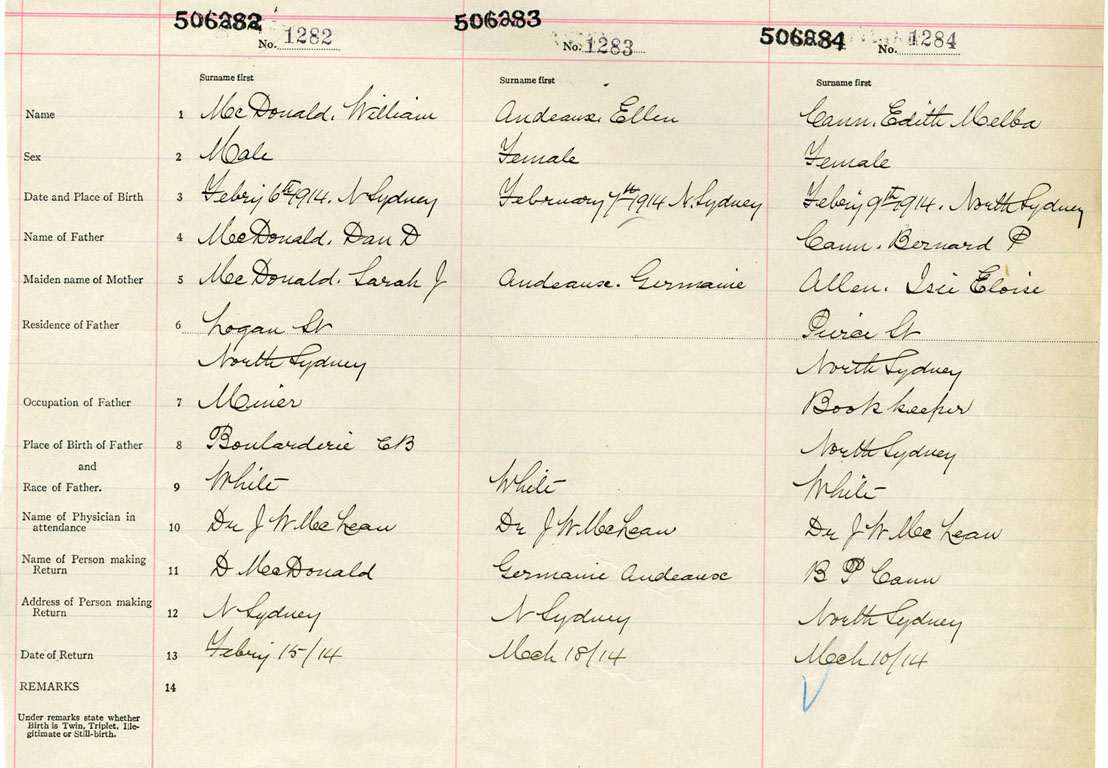 506282 506283 506284
No. 1282 No. 1283 No. 1284
Surname first Surname first Surname first
Name 1 McDonald. William Andeaux. Ellen Cann. Edith Melba
Sex 2 Male Female Female
Date and Place of Birth 3 Febry 6th 1914. N Sydney February 7th 1914 N. Sydney Febry 9th 1914. North Sydney
Name of Father 4 McDonald. Dan D Cann. Bernard P
Maiden name of Mother 5 McDonald. Sarah J Andeaux. Germaine Allen. Eloise
Residence of Father 6 Logan St St
North Sydney North Sydney
Occupation of Father 7 Miner Book keeper
Place of Birth of Father 8 Boularderie CB North Sydney
and
Race of Father. 9 White White White
Name of Physician in
attendance 10 Dr J W McLean Dr J W McLean Dr J W McLean
Name of Person making
Return 11 D McDonald Germaine Andeaux B P Cann
Address of Person making
Return 12 N Sydney N Sydney North Sydney
Date of Return 13 Febry 15/14 Mch 18/14 Mch 10/14
REMARKS 14
Under remarks state whether
Birth is Twin, Triplet, Ille-
gitimate or Still-birth.